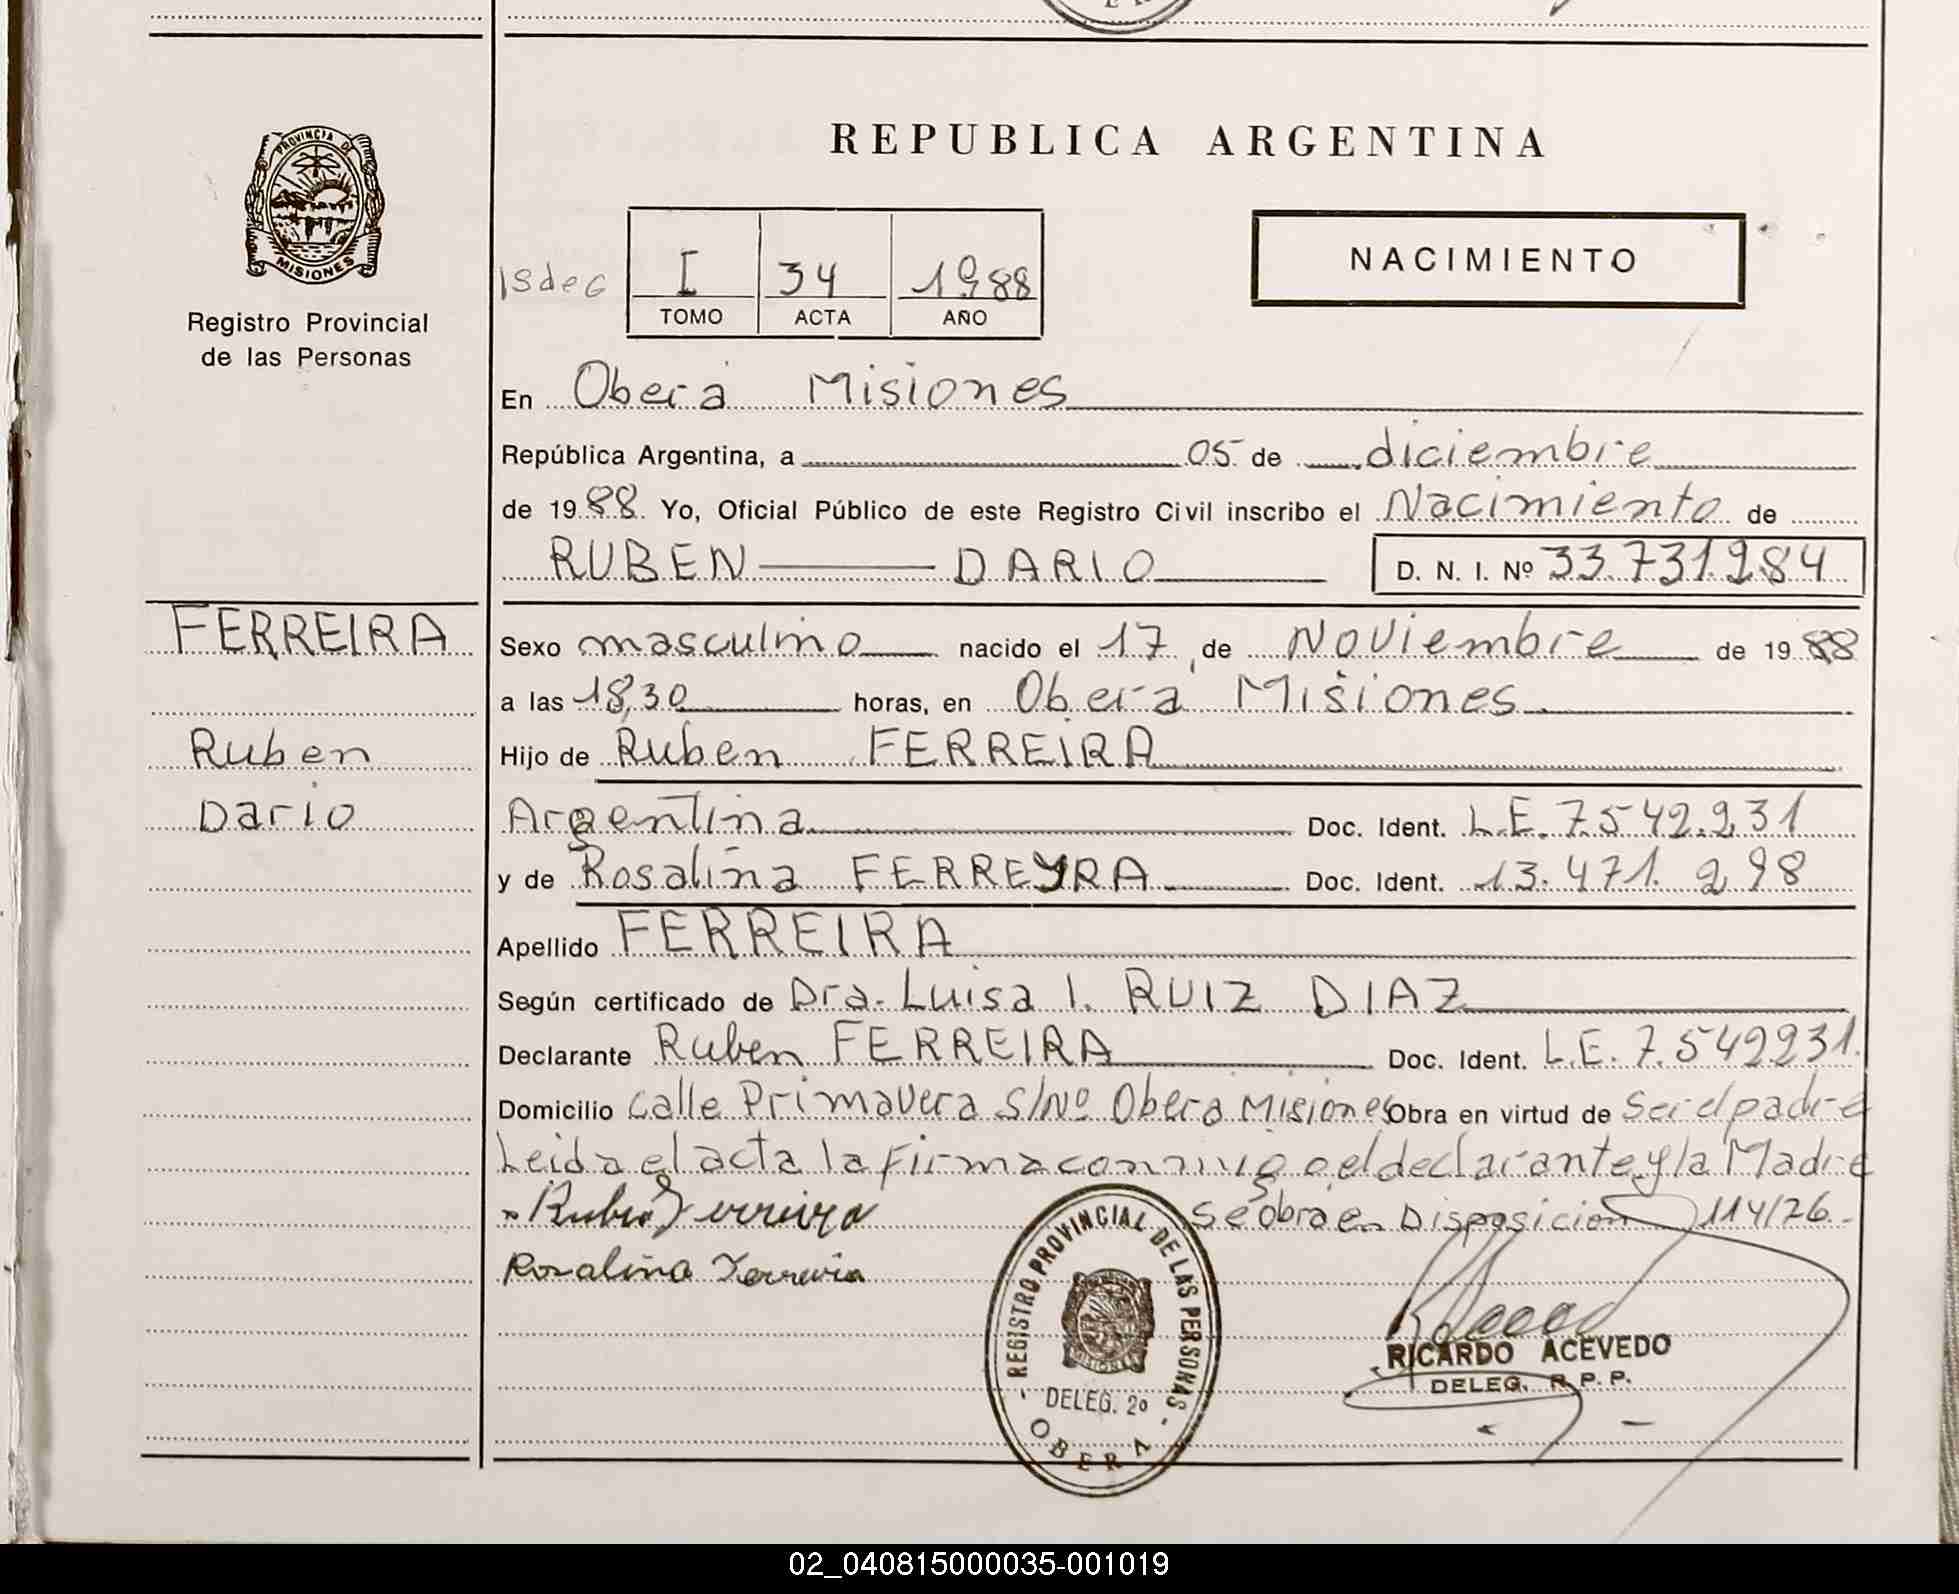 PROVINCIA DE
MISIONES
Registro Provincial
de las Personas
REPUBLICA ARGENTINA
I 34 1988
TOMO ACTA AÑO
NACIMIENTO
En Oberá Misiones
República Argentina, a 05 de diciembre
de 1988 Yo, Oficial Público de este Registro Civil inscribo el Nacimiento de
RUBEN DARIO D. N. I. Nº 33.731.984
FERREIRA
Ruben
Dario
Sexo masculino nacido el 17 de Noviembre de 1988
a las 18,30 horas, en Oberá Misiones
Hijo de Ruben FERREIRA
Argentina Doc. Ident. L.E. 7.542.931
y de Rosalina FERREYRA Doc. Ident. 13.471.298
Apellido FERREIRA
Según certificado de Dra. Luisa I. RUIZ DIAZ
Declarante Ruben FERREIRA Doc. Ident. L.E. 7.542931.
Domicilio calle Primavera S/Nº Obera Misiones Obra en virtud de ser el padre
Leida el acta la firma conmigo el declarante y la Madre
Se obra en Disposicion 114/76.
Ruben Ferreira
Rosalina Ferreira
REGISTRO PROVINCIAL DE LAS PERSONAS
MISIONES
DELEG. 2º
OBERA
RICARDO ACEVEDO
DELEG. R. P. P.
02_040815000035-001019